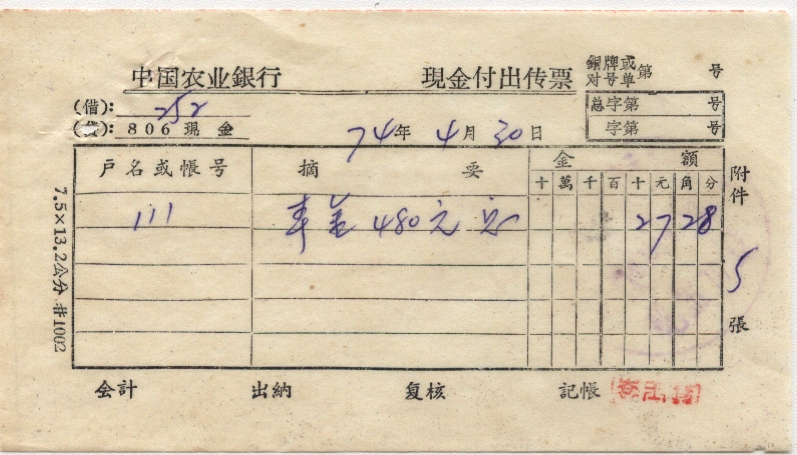 中国农业銀行 現金付出传票
銅牌或
对号单 第 号
总字第 号
字第 号
(借): 252
(貸): 806 現金
74年 4月 30日
戶名或帳号 摘要 金額
十 萬 千 百 十 元 角 分
111 480元 27 28
附件 5 張
7.5×13.2公分 #1002
会計 出納 复核 記帳